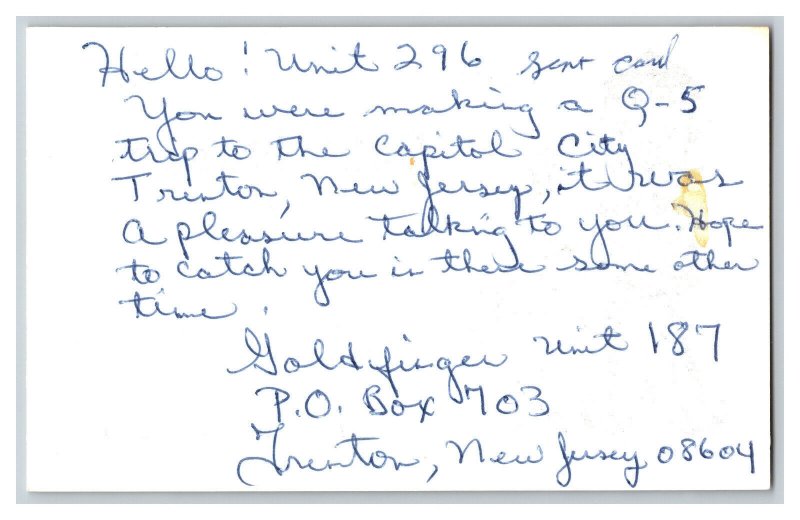 Hello! Unit 296 sent card
You were making a Q-5
trip to the Capitol City
Trenton, New Jersey, it was
a pleasure talking to you. Hope
to catch you in there some other
time.
Goldfinger Unit 187
P.O. Box 703
Trenton, New Jersey 08604